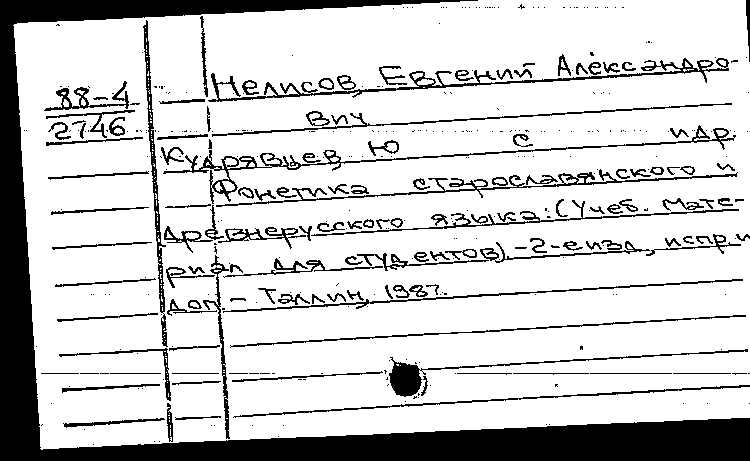 88-4
2746
Нелисов, Евгений Александро-
вич
Кудрявцев, Ю С и др.
Фонетика старославянского и
древнерусского языка: (Учеб. мате-
риал для студентов). - 2-е изд., испр. и
доп. - Таллин, 1987.